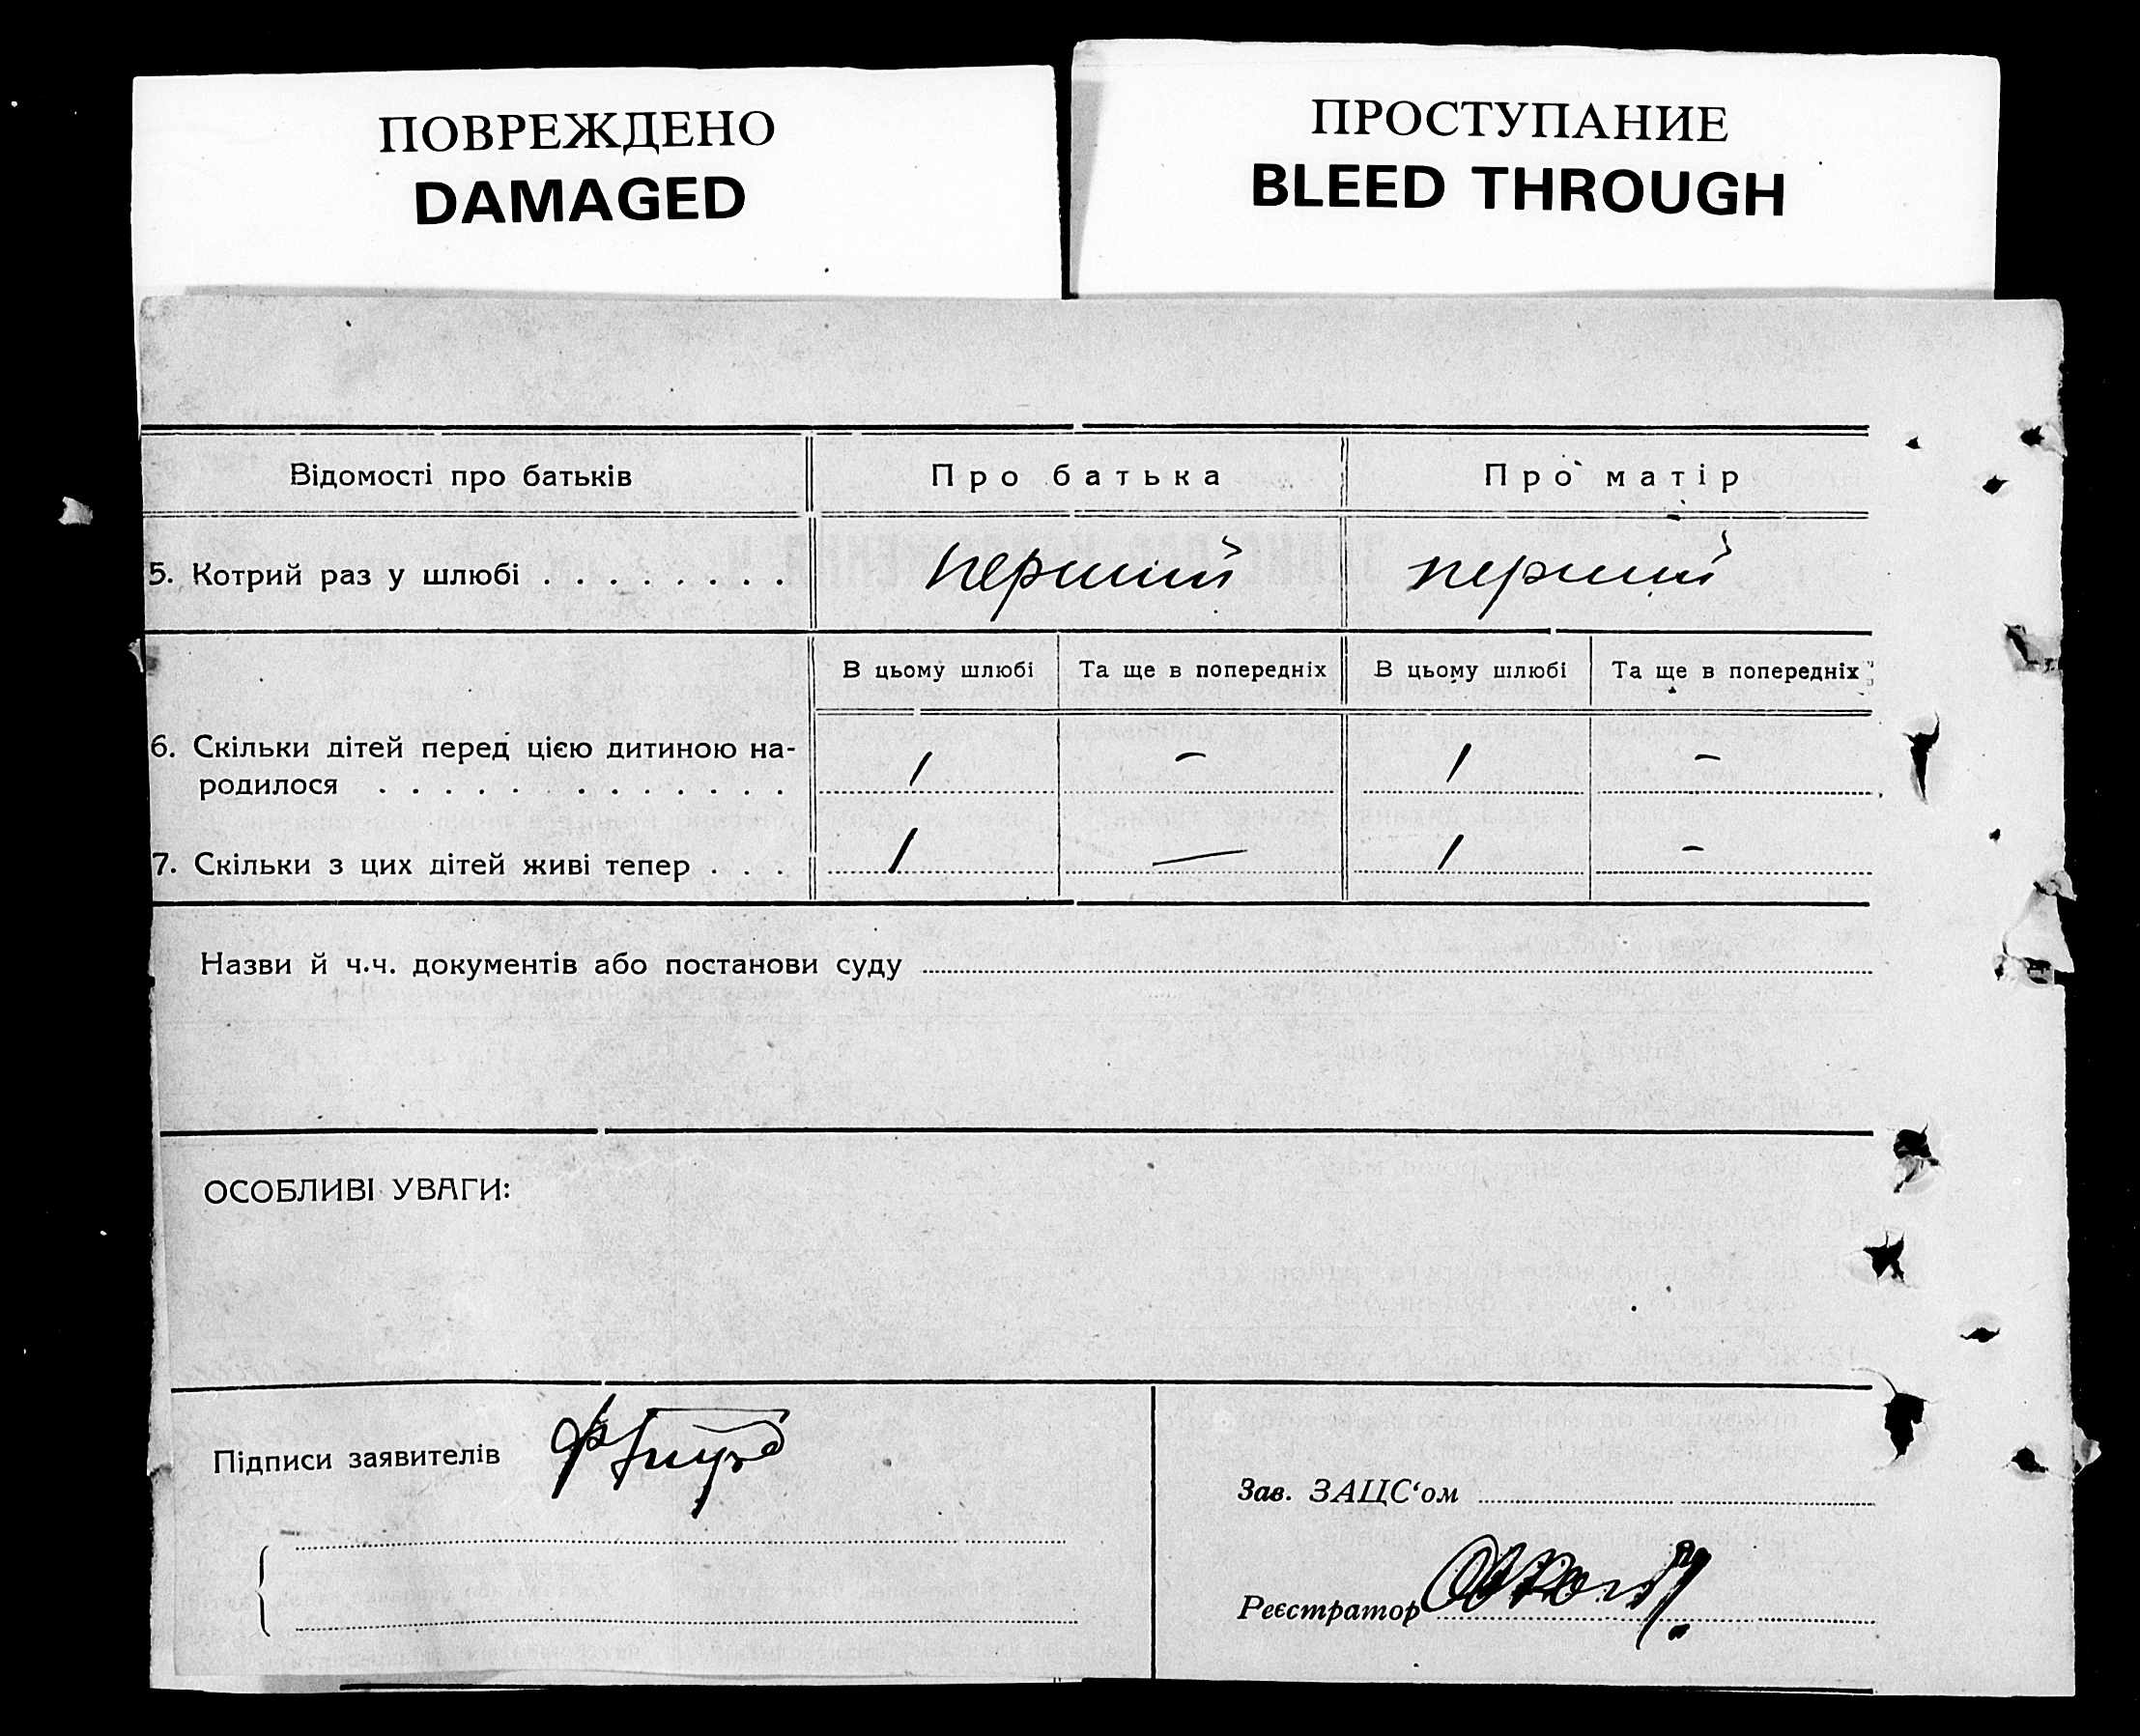 ПОВРЕЖДЕНО
DAMAGED
ПРОСТУПАНИЕ
BLEED THROUGH
Відомості про батьків Про батька Про матір
5. Котрий раз у шлюбі . . . . . . . . перший перший
В цьому шлюбі Та ще в попередніх В цьому шлюбі Та ще в попередніх
6. Скільки дітей перед цією дитиною на-
родилося . . . . . . . . . . . . . 1 – 1 –
7. Скільки з цих дітей живі тепер . . . 1 — 1 –
Назви й ч.ч. документів або постанови суду
ОСОБЛИВІ УВАГИ:
Підписи заявителів
Зав. ЗАЦС‘ом
Реєстратор